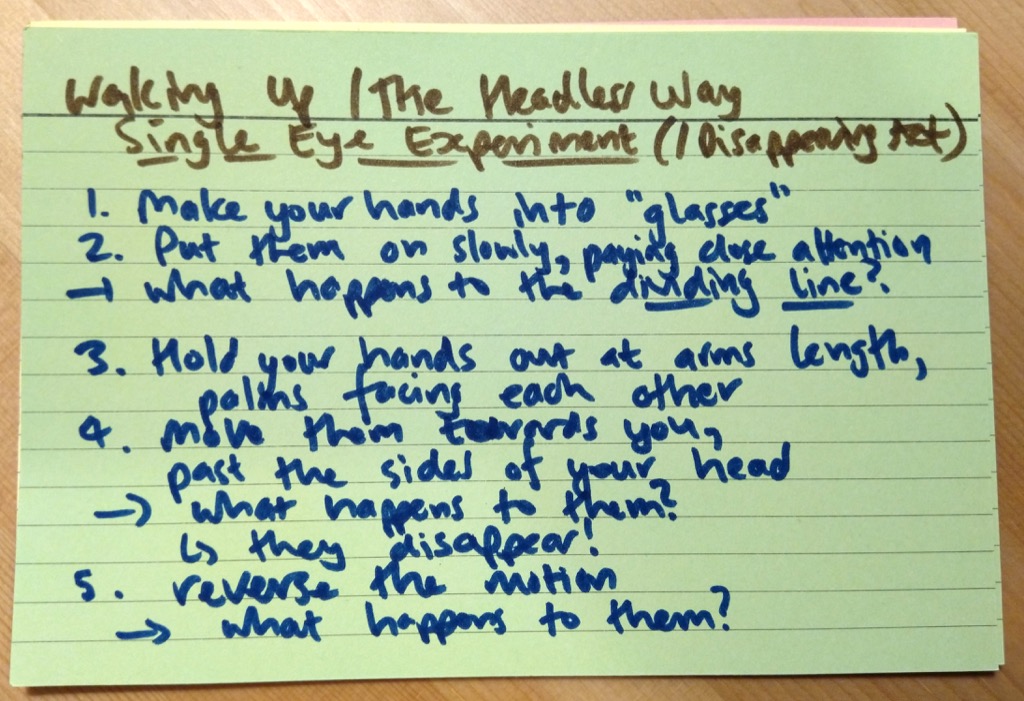 Waking Up / The Headless Way
Single Eye Experiment (/ Disappearing act)
1. Make your hands into "glasses"
2. Put them on slowly, paying close attention
→ what happens to the dividing line?
3. Hold your hands out at arms length,
palms facing each other
4. Move them towards you,
past the sides of your head
→ what happens to them?
↳ they disappear!
5. reverse the motion
→ what happens to them?